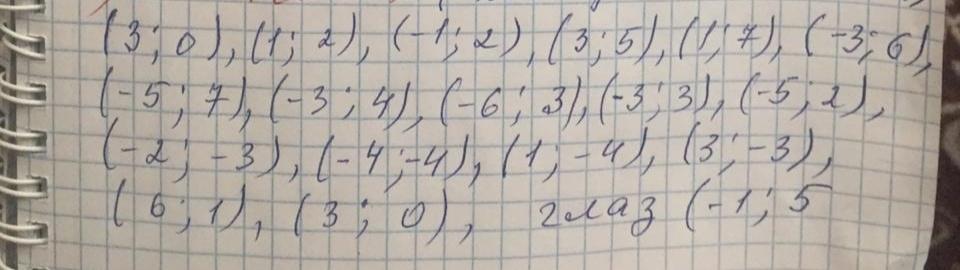 (3; 0), (1; 2), (-1; 2), (3; 5), (1; 7), (-3; 6),
(-5; 7), (-3; 4), (-6; 3), (-3; 3), (-5; 2),
(-2; -3), (-4; -4), (1; -4), (3; -3),
(6; 1), (3; 0), глаз (-1; 5